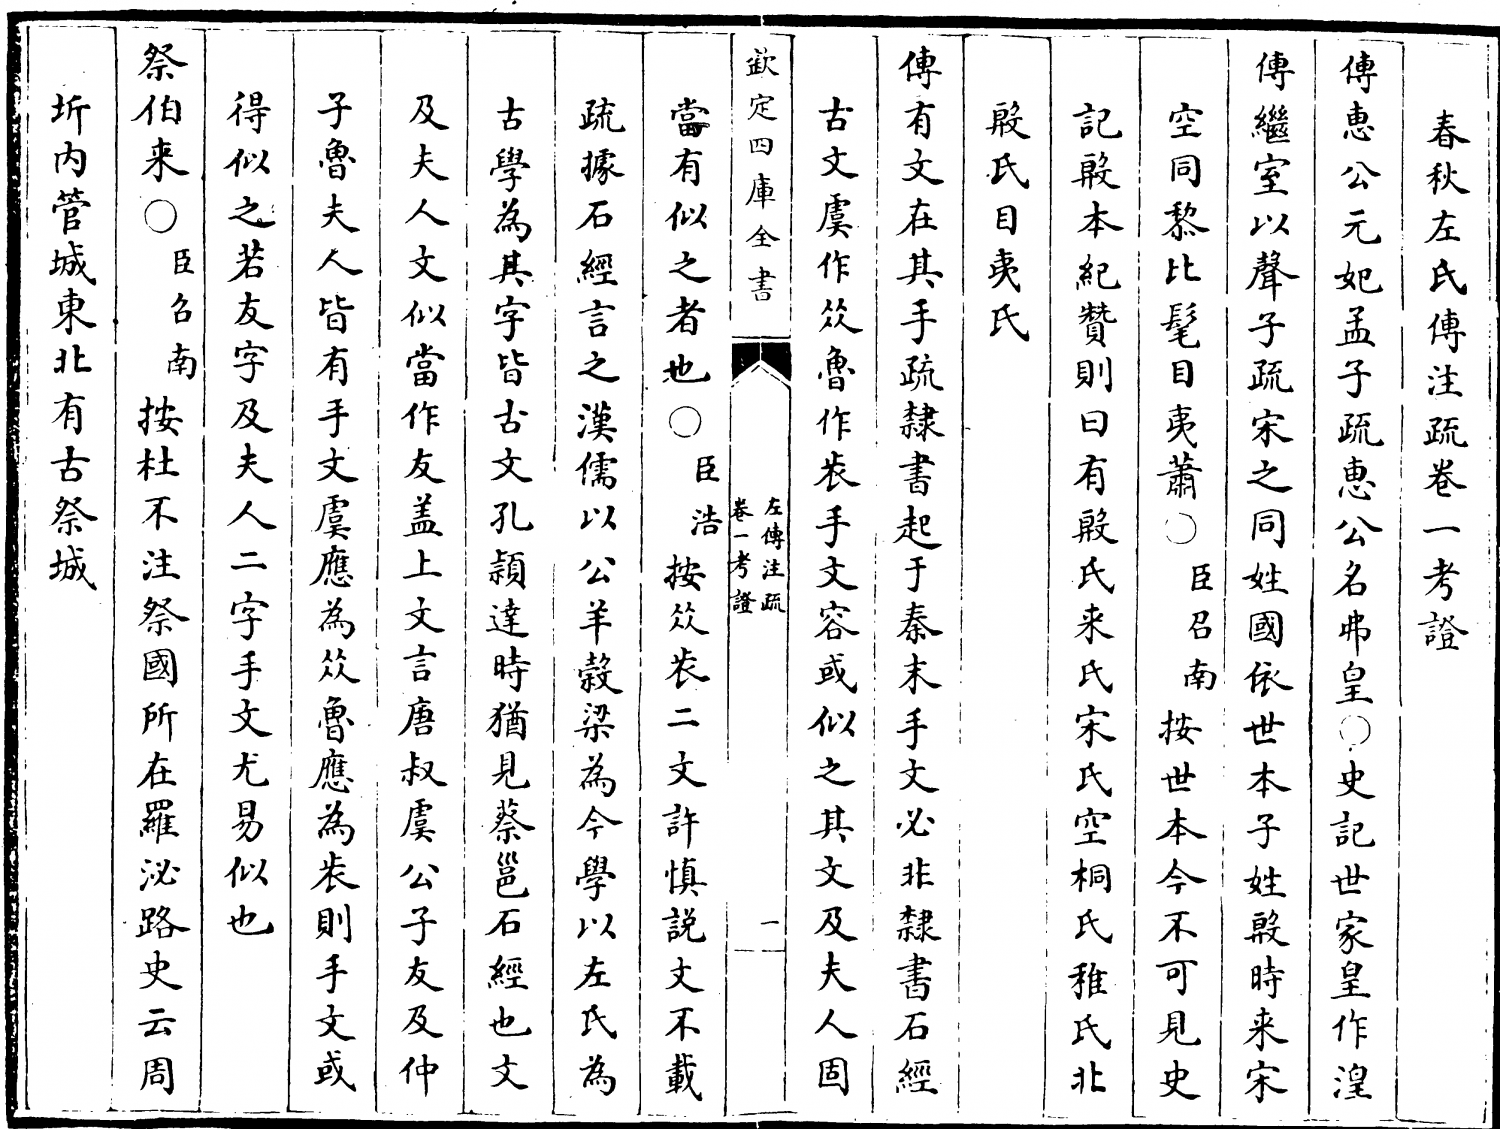 春秋左氏傳注疏卷一考證
傳惠公元妃孟子疏惠公名弗皇○史記世家皇作湟
傳繼室以聲子疏宋之同姓國依世本子姓殷時来宋
空同黎比髦目夷蕭○臣召南按世本今不可見史
記殷本紀贊則曰有殷氏来氏宋氏空桐氏稚氏北
殷氏目夷氏
傳有文在其手疏隸書起于秦末手文必非隸書石經
古文虞作𠈌魯作㫺手文容或似之其文及夫人固
欽定四庫全書
左傳注疏
卷一考證
一
當有似之者也○臣浩按𠈌㫺二文許慎說文不載
疏據石經言之漢儒以公羊榖梁為今學以左氏為
古學為其字皆古文孔穎達時猶見蔡邕石經也文
及夫人文似當作友盖上文言唐叔虞公子友及仲
子魯夫人皆有手文虞應為𠈌魯應為㫺則手文或
得似之若友字及夫人二字手文尤易似也
祭伯来○臣召南按杜不注祭國所在羅泌路史云周
圻内管城東北有古祭城